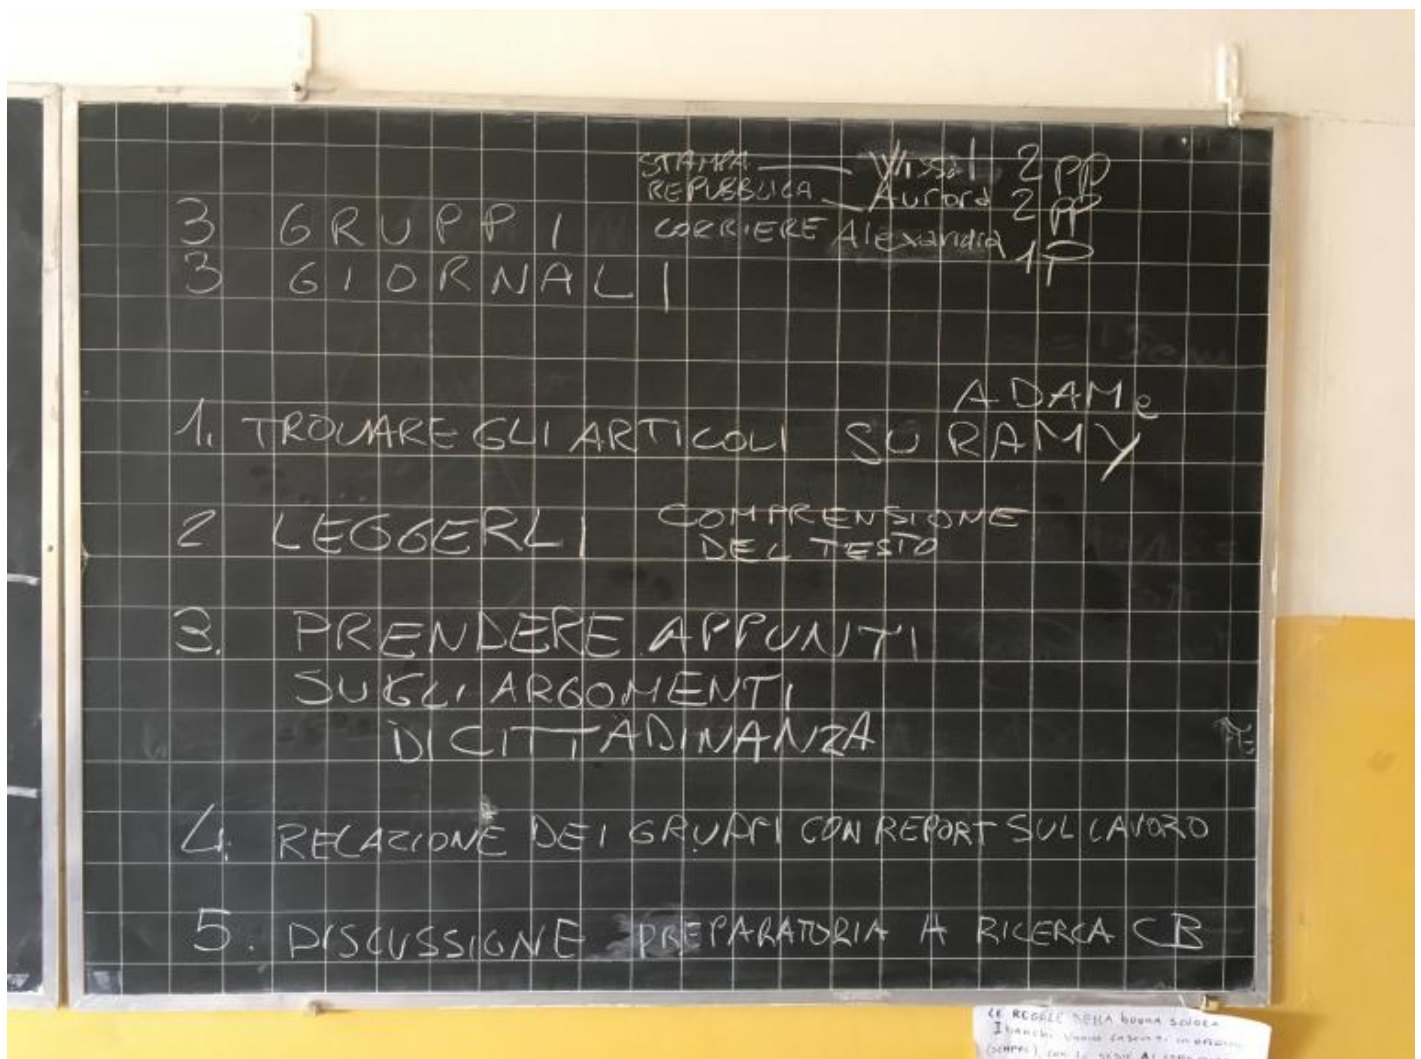 STAMPA Wissal 2 PP
REPUBBLICA Aurora 2 PP
3 GRUPPI CORRIERE Alexandra 1P
3 GIORNALI
ADAM e
1. TROVARE GLI ARTICOLI SU RAMY
2 LEGGERLI COMPRENSIONE
DEL TESTO
3. PRENDERE APPUNTI
SUGLI ARGOMENTI
DI CITTADINANZA
4. RELAZIONE DEI GRUPPI CON REPORT SUL LAVORO
5. DISCUSSIONE PREPARATORIA A RICERCA CB
LE REGOLE DELLA buona scuola
I banchi vanno